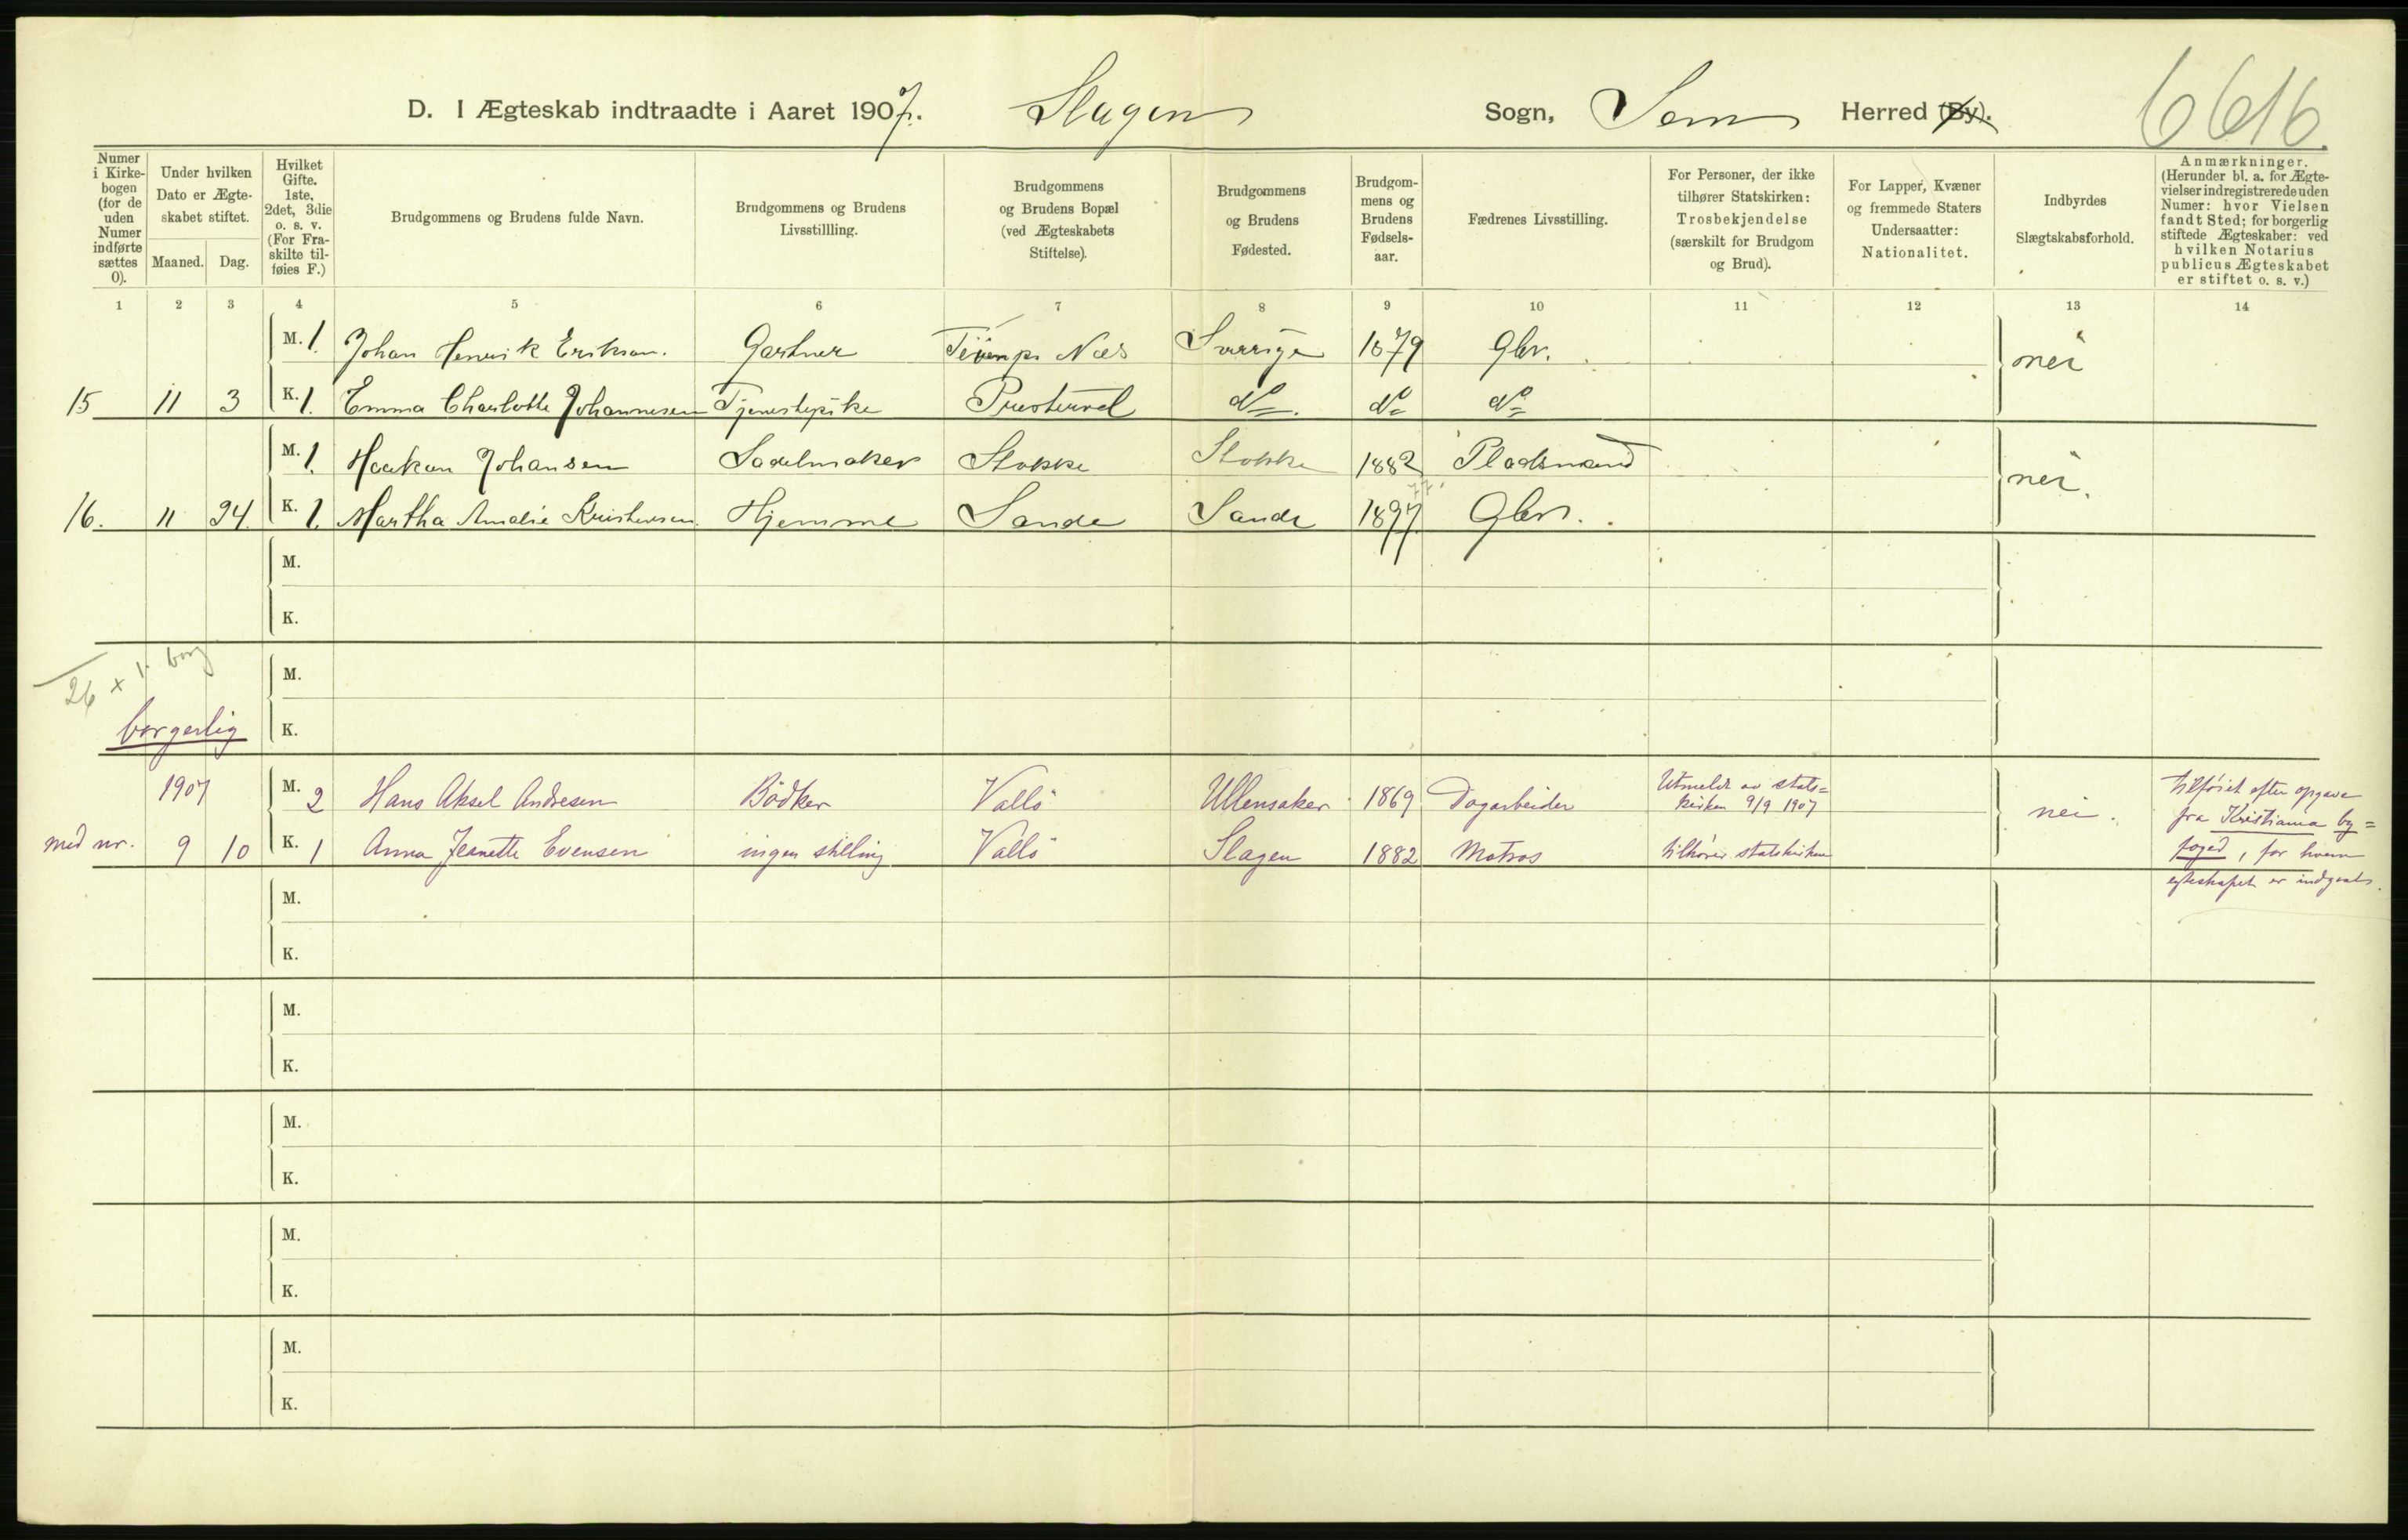 D. I Ægteskab indtraadte i Aaret 1907. Slagen Sogn, Sem Herred (By). 6616.
Numer i Kirke-bogen (for de uden Numer indførte sættes 0).
Under hvilken Dato er Ægte-skabet stiftet.
Maaned. Dag.
Hvilket Gifte. 1ste, 2det, 3die o. s. v. (For Fra-skilte til-føies F.)
Brudgommens og Brudens fulde Navn.
Brudgommens og Brudens Livsstillling.
Brudgommens og Brudens Bopæl (ved Ægteskabets Stiftelse).
Brudgommens og Brudens Fødested.
Brudgom-mens og Brudens Fødsels-aar.
Fædrenes Livsstilling.
For Personer, der ikke tilhører Statskirken: Trosbekjendelse (særskilt for Brudgom og Brud).
For Lapper, Kvæner og fremmede Staters Undersaatter: Nationalitet.
Indbyrdes Slægtskabsforhold.
Anmærkninger. (Herunder bl. a. for Ægte-vielser indregistrerede uden Numer: hvor Vielsen fandt Sted; for borgerlig stiftede Ægteskaber: ved hvilken Notarius publicus Ægteskabet er stiftet o. s. v.)
1 2 3 4 5 6 7 8 9 10 11 12 13 14
M. 1. Johan Henrik Erikson. Gartner Næs Sverrige 1879 Gbr. nei
15 11 3 K. 1. Emma Charlotte Johannesen Tjenestepike Presterød do. do do
M. 1. Haakon Johansen Sadelmaker Stokke Stokke 1882 Pladsmand nei.
77
16. 11 24. K. 1. Martha Amalie Kristensen. Hjemme Sande Sande 1897 Gbr.
M.
K.
26 + 1 borg
M.
borgerlig K.
1907 M. 2 Hans Aksel Andresen Bödker Vallö Ullensaker 1869 Dagarbeider Utmeldt av stats=
kirken 9/9 1907 nei. tilføiet efter opgave
fra Kristiania by=
med nr. 9 10 K. 1 Anna Jeanette Evensen ingen stilling Vallö Slagen 1882 Matros tilhører statskirken foged, for hvem
egteskapet er indgaat.
M.
K.
M.
K.
M.
K.
M.
K.
M.
K.